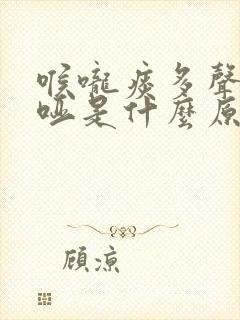 喉嚨痰多聲
啞是什麼原
顧涼